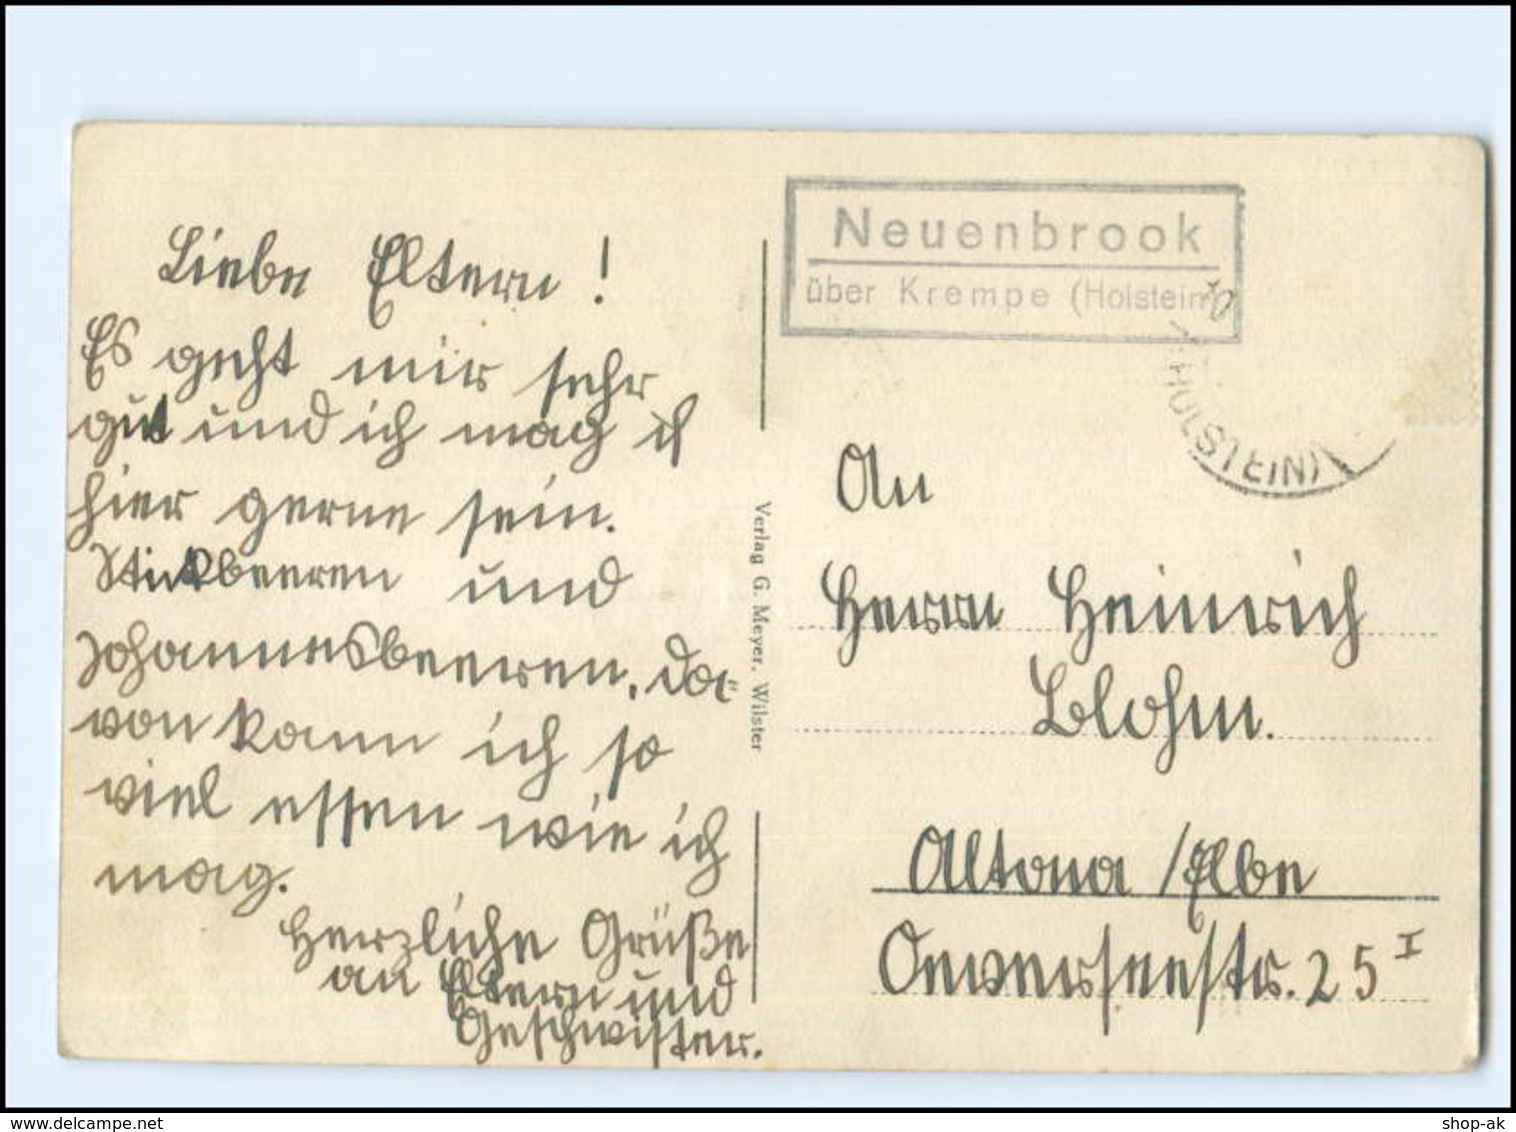 Liebe Eltern!
Es geht mir sehr
gut und ich mag
hier gerne sein.
Stickbeeren und
Johannesbeeren, da-
von kann ich so
viel essen wie ich
mag.
Herzliche Grüße
an Eltern und
Geschwister.
Verlag G. Meyer, Wilster
Neuenbrook
über Krempe (Holstein)
(HOLSTEIN)
An
Herrn Heinrich
Blohm.
Altona /Elbe
Oeverseestr. 25 I
shop-ak